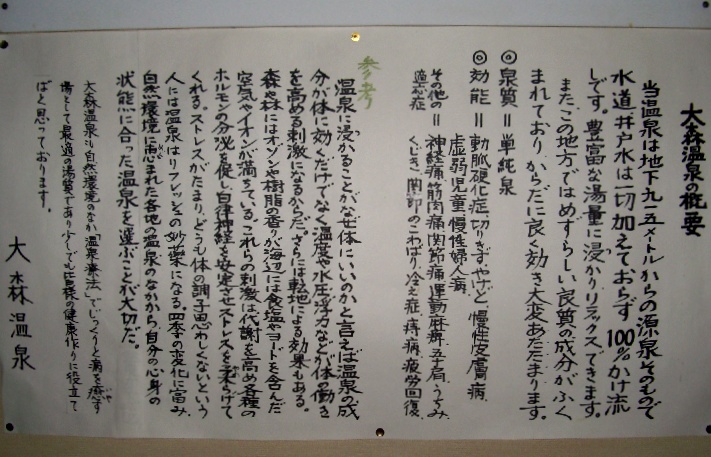 大森温泉の概要
当温泉は地下九一五メートルからの源泉そのもので
水道井戸水は一切加えておらず100％かけ流
しです。豊富な湯量に浸かりリラックスできます。
またこの地方ではめずらしい良質の成分がふく
まれており からだに良く効き大変あたたまります。
◎泉質＝単純泉
◎効能＝動脈硬化症、切りきず、やけど、慢性皮膚病、
虚弱児童、慢性婦人病、
その他の適応症＝神経痛、筋肉痛、関節痛、運動麻痺、五十肩、うちみ
くじき、関節のこわばり、冷え症、痔病、疲労回復、
参考
温泉に浸かることがなぜ体にいいのかと言えば温泉の成
分が体に効くだけでなく温度や水圧、浮力などが体の働き
を高める刺激になるからだ。さらには転地による効果もある。
森や林にはオゾンや樹脂の香りが、海辺には食塩やヨードを含んだ
空気やイオンが満ちている。これらの刺激は代謝を高め各種の
ホルモンの分泌を促し自律神経を安定させストレスを柔らげて
くれる。ストレスがたまりどうも体の調子思わしくないという
人には温泉はリフレッシュの妙薬になる。四季の変化に富み、
自然環境に恵まれた各地の温泉のなかから、自分の心身の
状態に合った温泉を選ぶことが大切だ。
大森温泉も自然環境のなか「温泉療法」でじっくりと病を療す
湯として最適の湯質であり少しでも皆様の健康作りに役立て
ばと思っております。
大森温泉